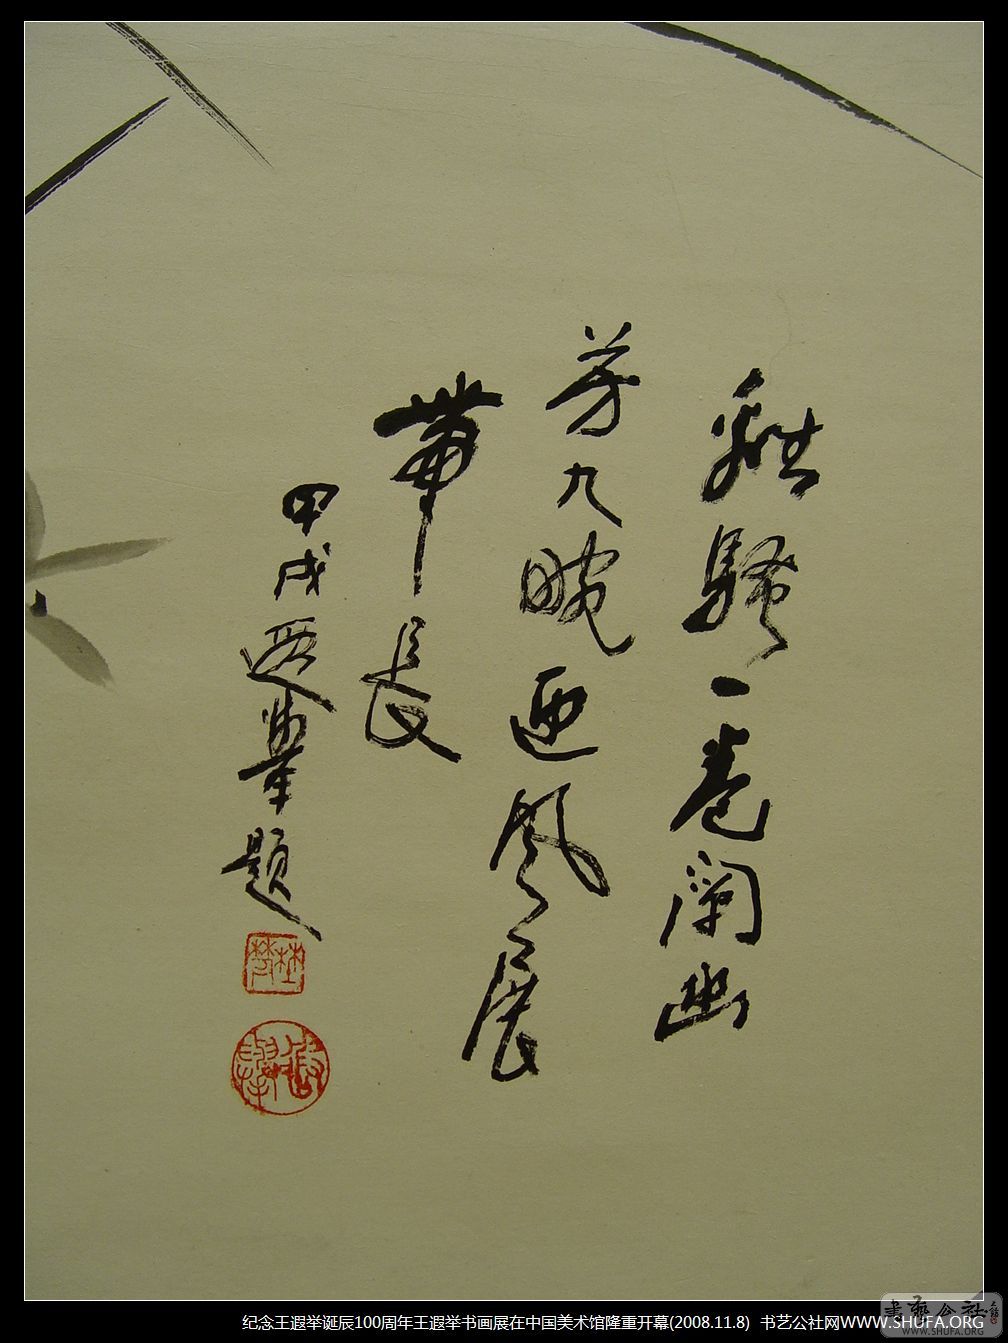 離騷一卷闡幽
芳九畹迎風展
帶長
甲戌遐舉題
書藝公社
WWW.SHUFA.ORG
纪念王遐举诞辰100周年王遐举书画展在中国美术馆隆重开幕(2008.11.8) 书艺公社网WWW.SHUFA.ORG